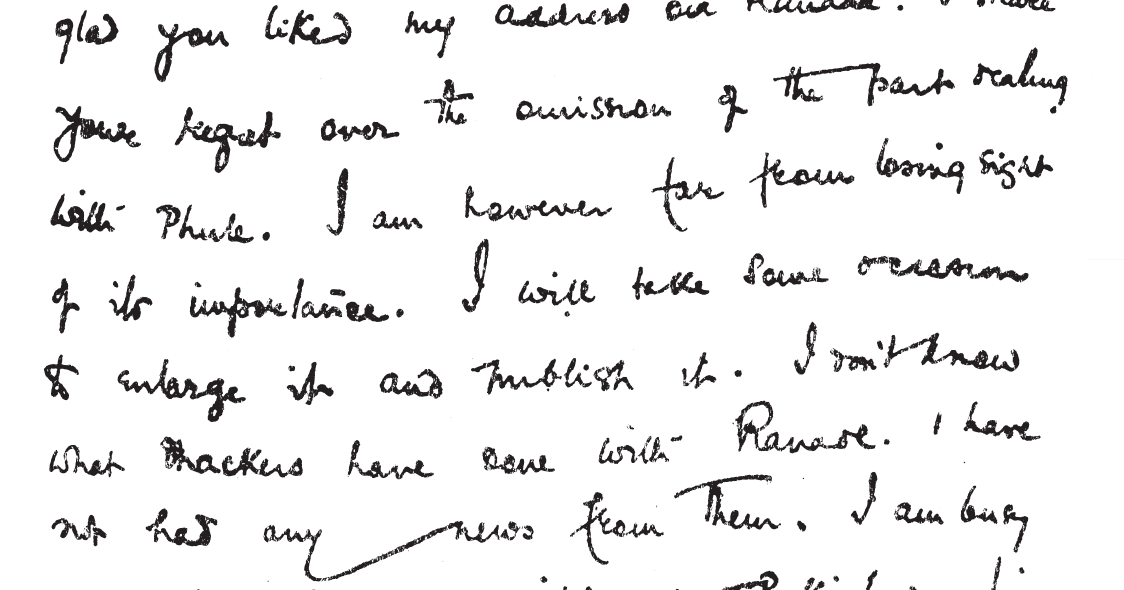 glad you liked my address on Ranade. I share
your regret over the omission of the part dealing
with Phule. I am however far from losing sight
of its importance. I will take some occasion
to enlarge it and publish it. I don't know
what Thackers have done with Ranade. I have
not had any news from Them. I am busy